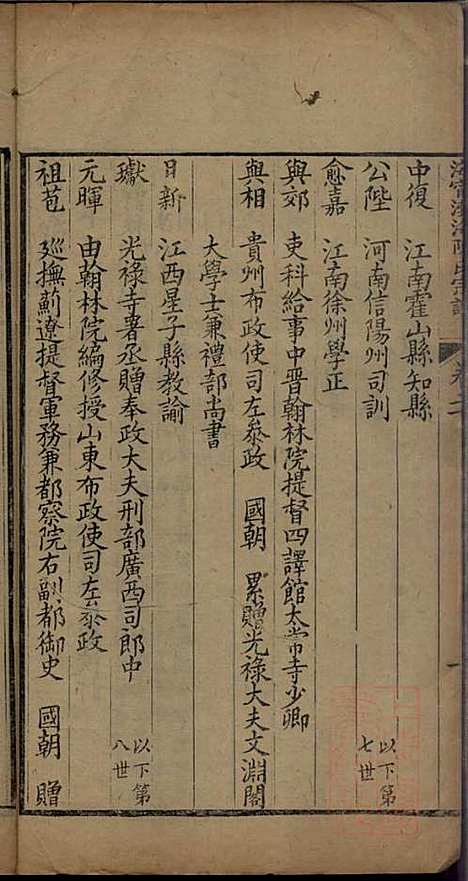 中復　江南霍山縣知縣
公陛　河南信陽州司訓　以下第七世
愈嘉　江南徐州學正
與郊　吏科給事中晋翰林院提督四譯館太常寺少卿
與相　貴州布政使司左叅政　國朝　累贈光祿大夫文淵閣
大學士兼禮部尚書
日新　江西星子縣教諭
瓛　光祿寺署丞贈奉政大夫刑部廣西司郎中　以下第八世
元暉　由翰林院編修授山東布政使司左叅政
祖苞　廵撫薊遼提督軍務兼都察院右副都御史　國朝　贈